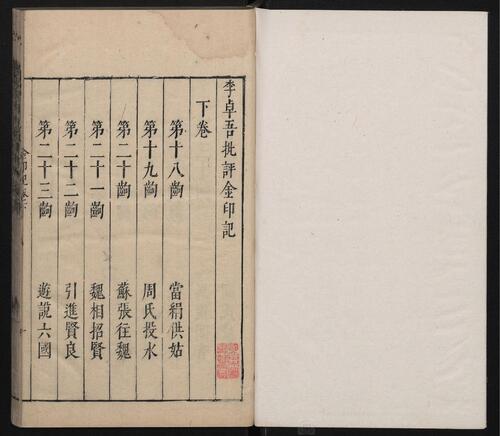 李卓吾批評金印記
下卷
第十八齣 當絹供姑
第十九齣 周氏投水
第二十齣 蘇張往魏
第二十一齣 魏相招賢
第二十二齣 引進賢良
第二十三齣 遊說六國